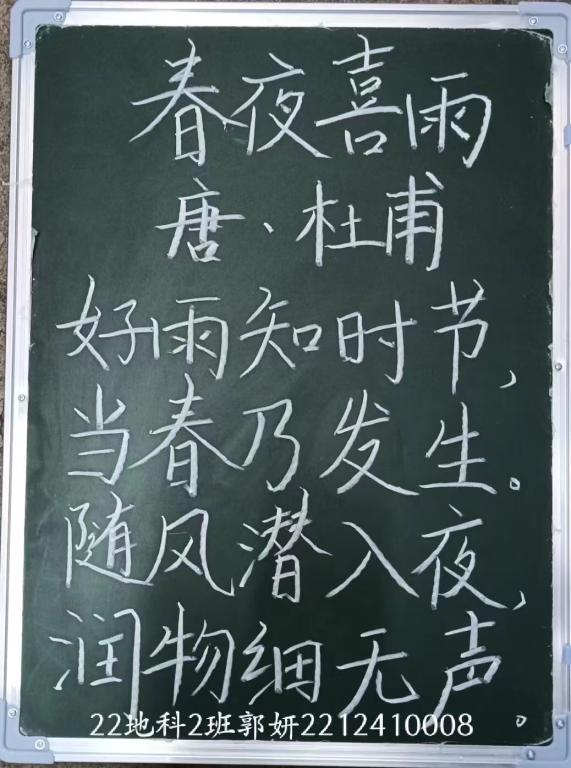 春夜喜雨
唐、杜甫
好雨知时节，
当春乃发生。
随风潜入夜，
润物细无声。
22地科2班郭妍2212410008